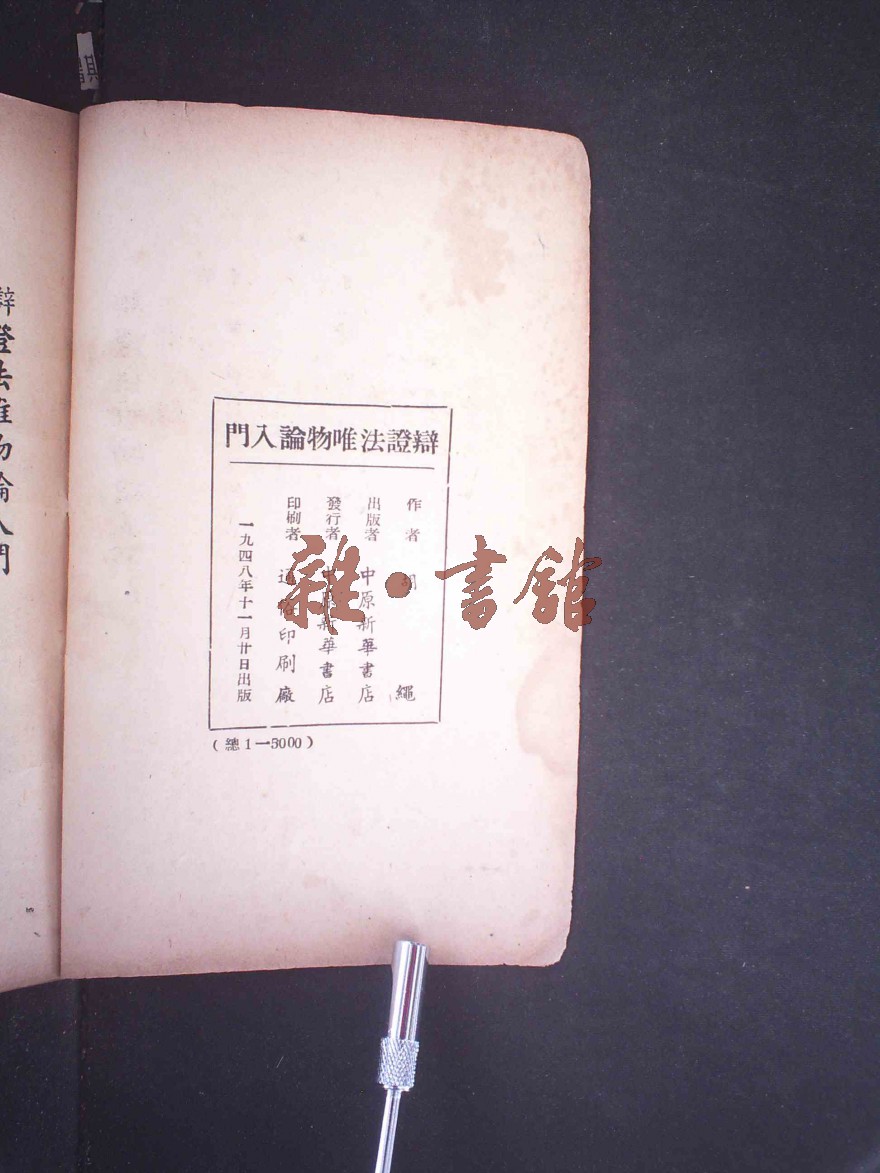 辯證法唯物論入門
作者 胡繩
出版者 中原新華書店
發行者 中原新華書店
印刷者 通俗印刷廠
一九四八年十一月廿日出版
(總1—5000)
雜·書館
辯證法唯物論入門